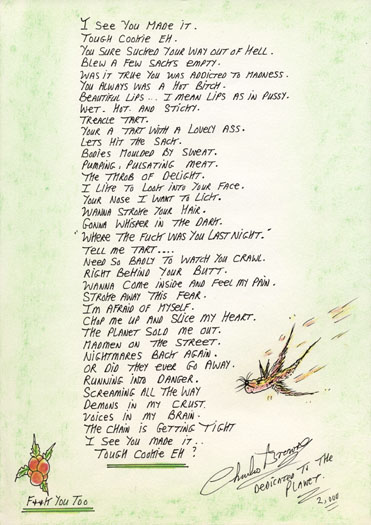 I See You Made it.
Tough Cookie Eh.
You Sure Sucked Your Way out of Hell.
Blew a Few Sacks empty.
Was it True You Was Addicted to Madness.
You Always Was a Hot Bitch.
Beautiful Lips... I Mean Lips as in Pussy.
Wet. Hot. And Sticky.
Treacle Tart.
Your a Tart With a Lovely Ass.
Lets Hit The Sack.
Bodies Moulded By Sweat.
Pumping, Pulsating Meat.
The Throb of Delight.
I Like To Look into Your Face.
Your Nose I Want to Lick.
Wanna Stroke Your Hair.
Gonna Whisper in The Dark.
"Where The Fuck Was You Last Night."
Tell me Tart....
Need So Badly To Watch You Crawl.
Right Behind Your Butt.
Wanna Come inside and Feel my Pain.
Stroke Away This Fear.
I'm Afraid of Myself.
Chop me Up and Slice my Heart.
The Planet Sold me out.
Madmen on The Street.
Nightmares Back Again.
or Did They ever Go Away.
Running into Danger.
Screaming All The Way
Demons in my Crust.
Voices in my Brain.
The Chain is Getting Tight
I See You Made it..
Tough Cookie Eh?
Dedicated To The
Planet.
2,000
F**k You Too